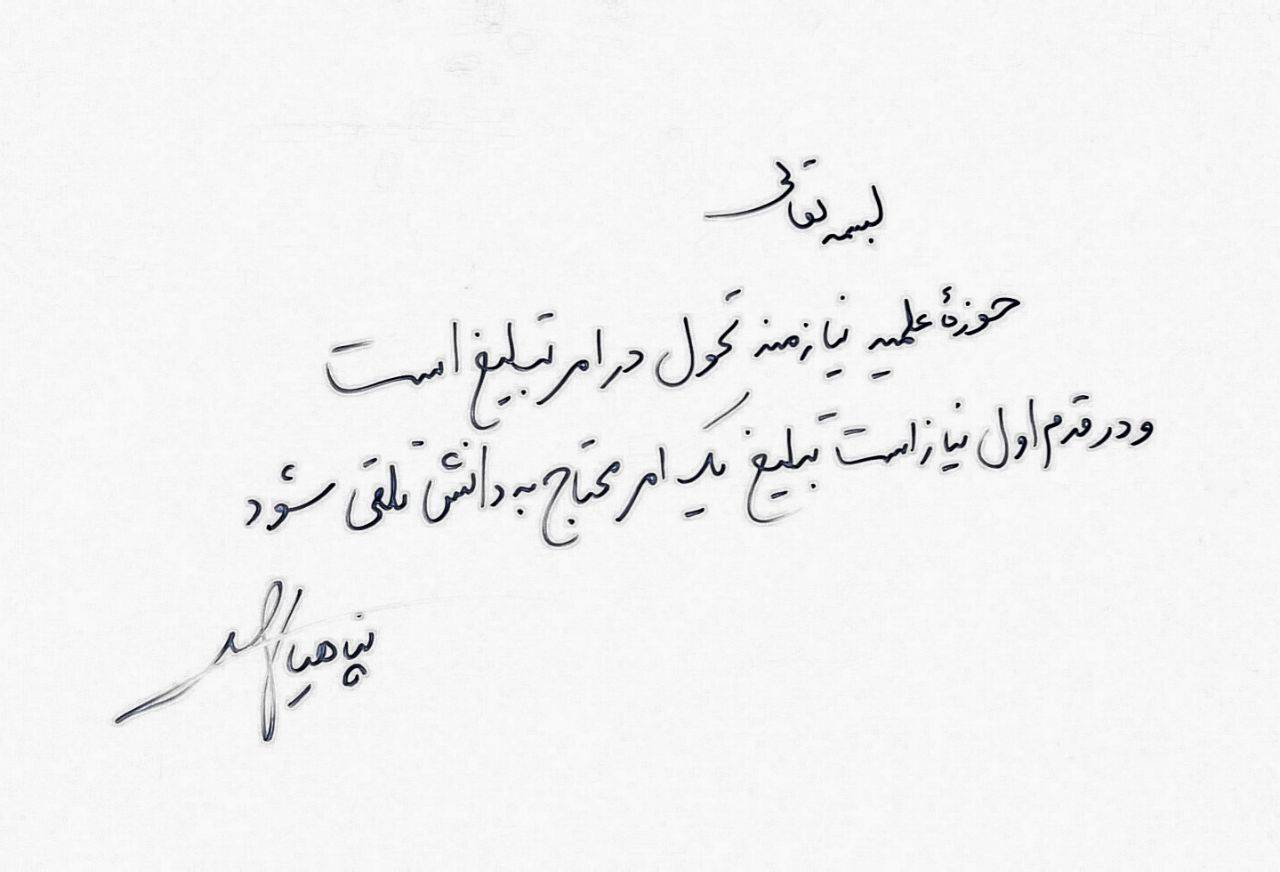 بسمه تعالی
حوزهٔ علمیه نیازمند تحول در امر تبلیغ است
و در قدم اول نیاز است تبلیغ یک امر محتاج به دانش تلقی شود
پناهیان